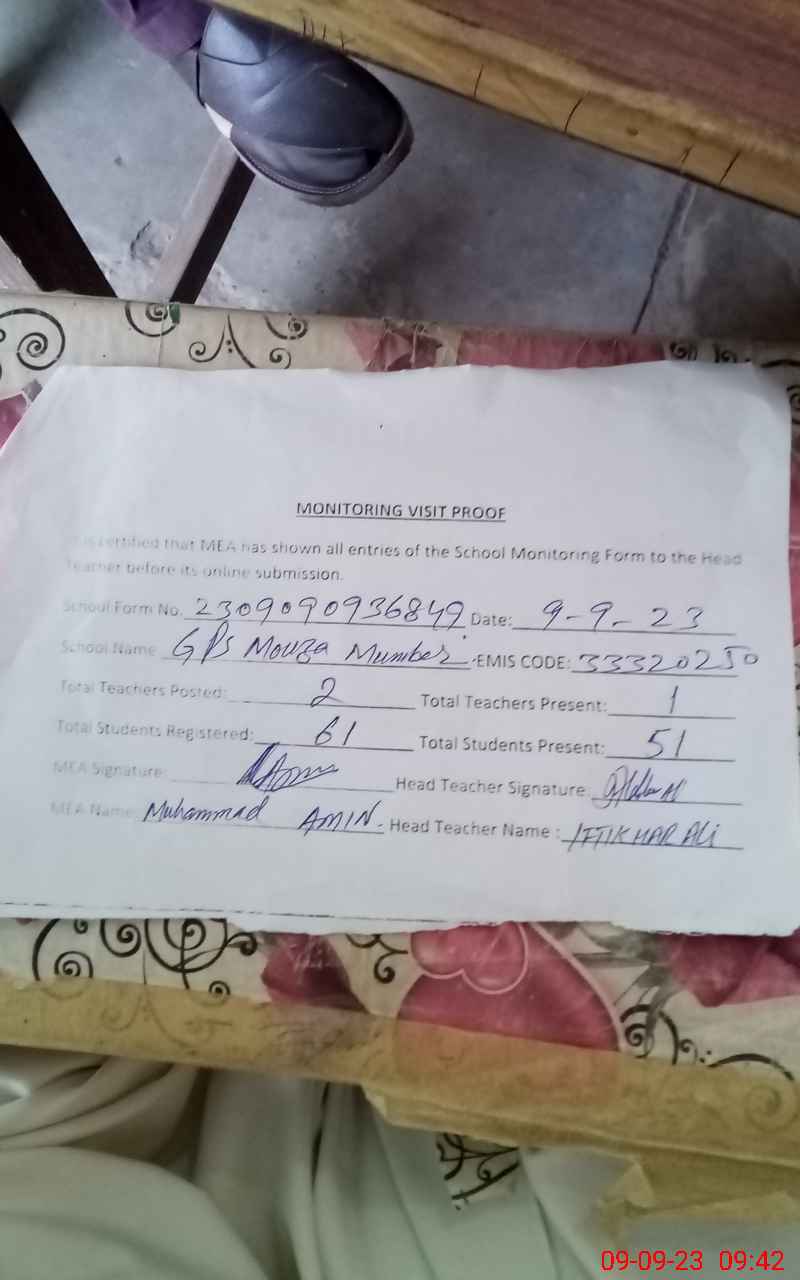 MONITORING VISIT PROOF
is certified that MEA has shown all entries of the School Monitoring Form to the Head
Teacher before its online submission.
School Form No. 2309090936849 Date: 9-9-23
School Name GPS Mouza Mumber EMIS CODE: 33320250
Total Teachers Posted: 2 Total Teachers Present: 1
Total Students Registered: 61 Total Students Present: 51
MEA Signature Head Teacher Signature:
MEA Name Muhammad AMIN. Head Teacher Name : IFTIKHAR ALi
09-09-23 09:42